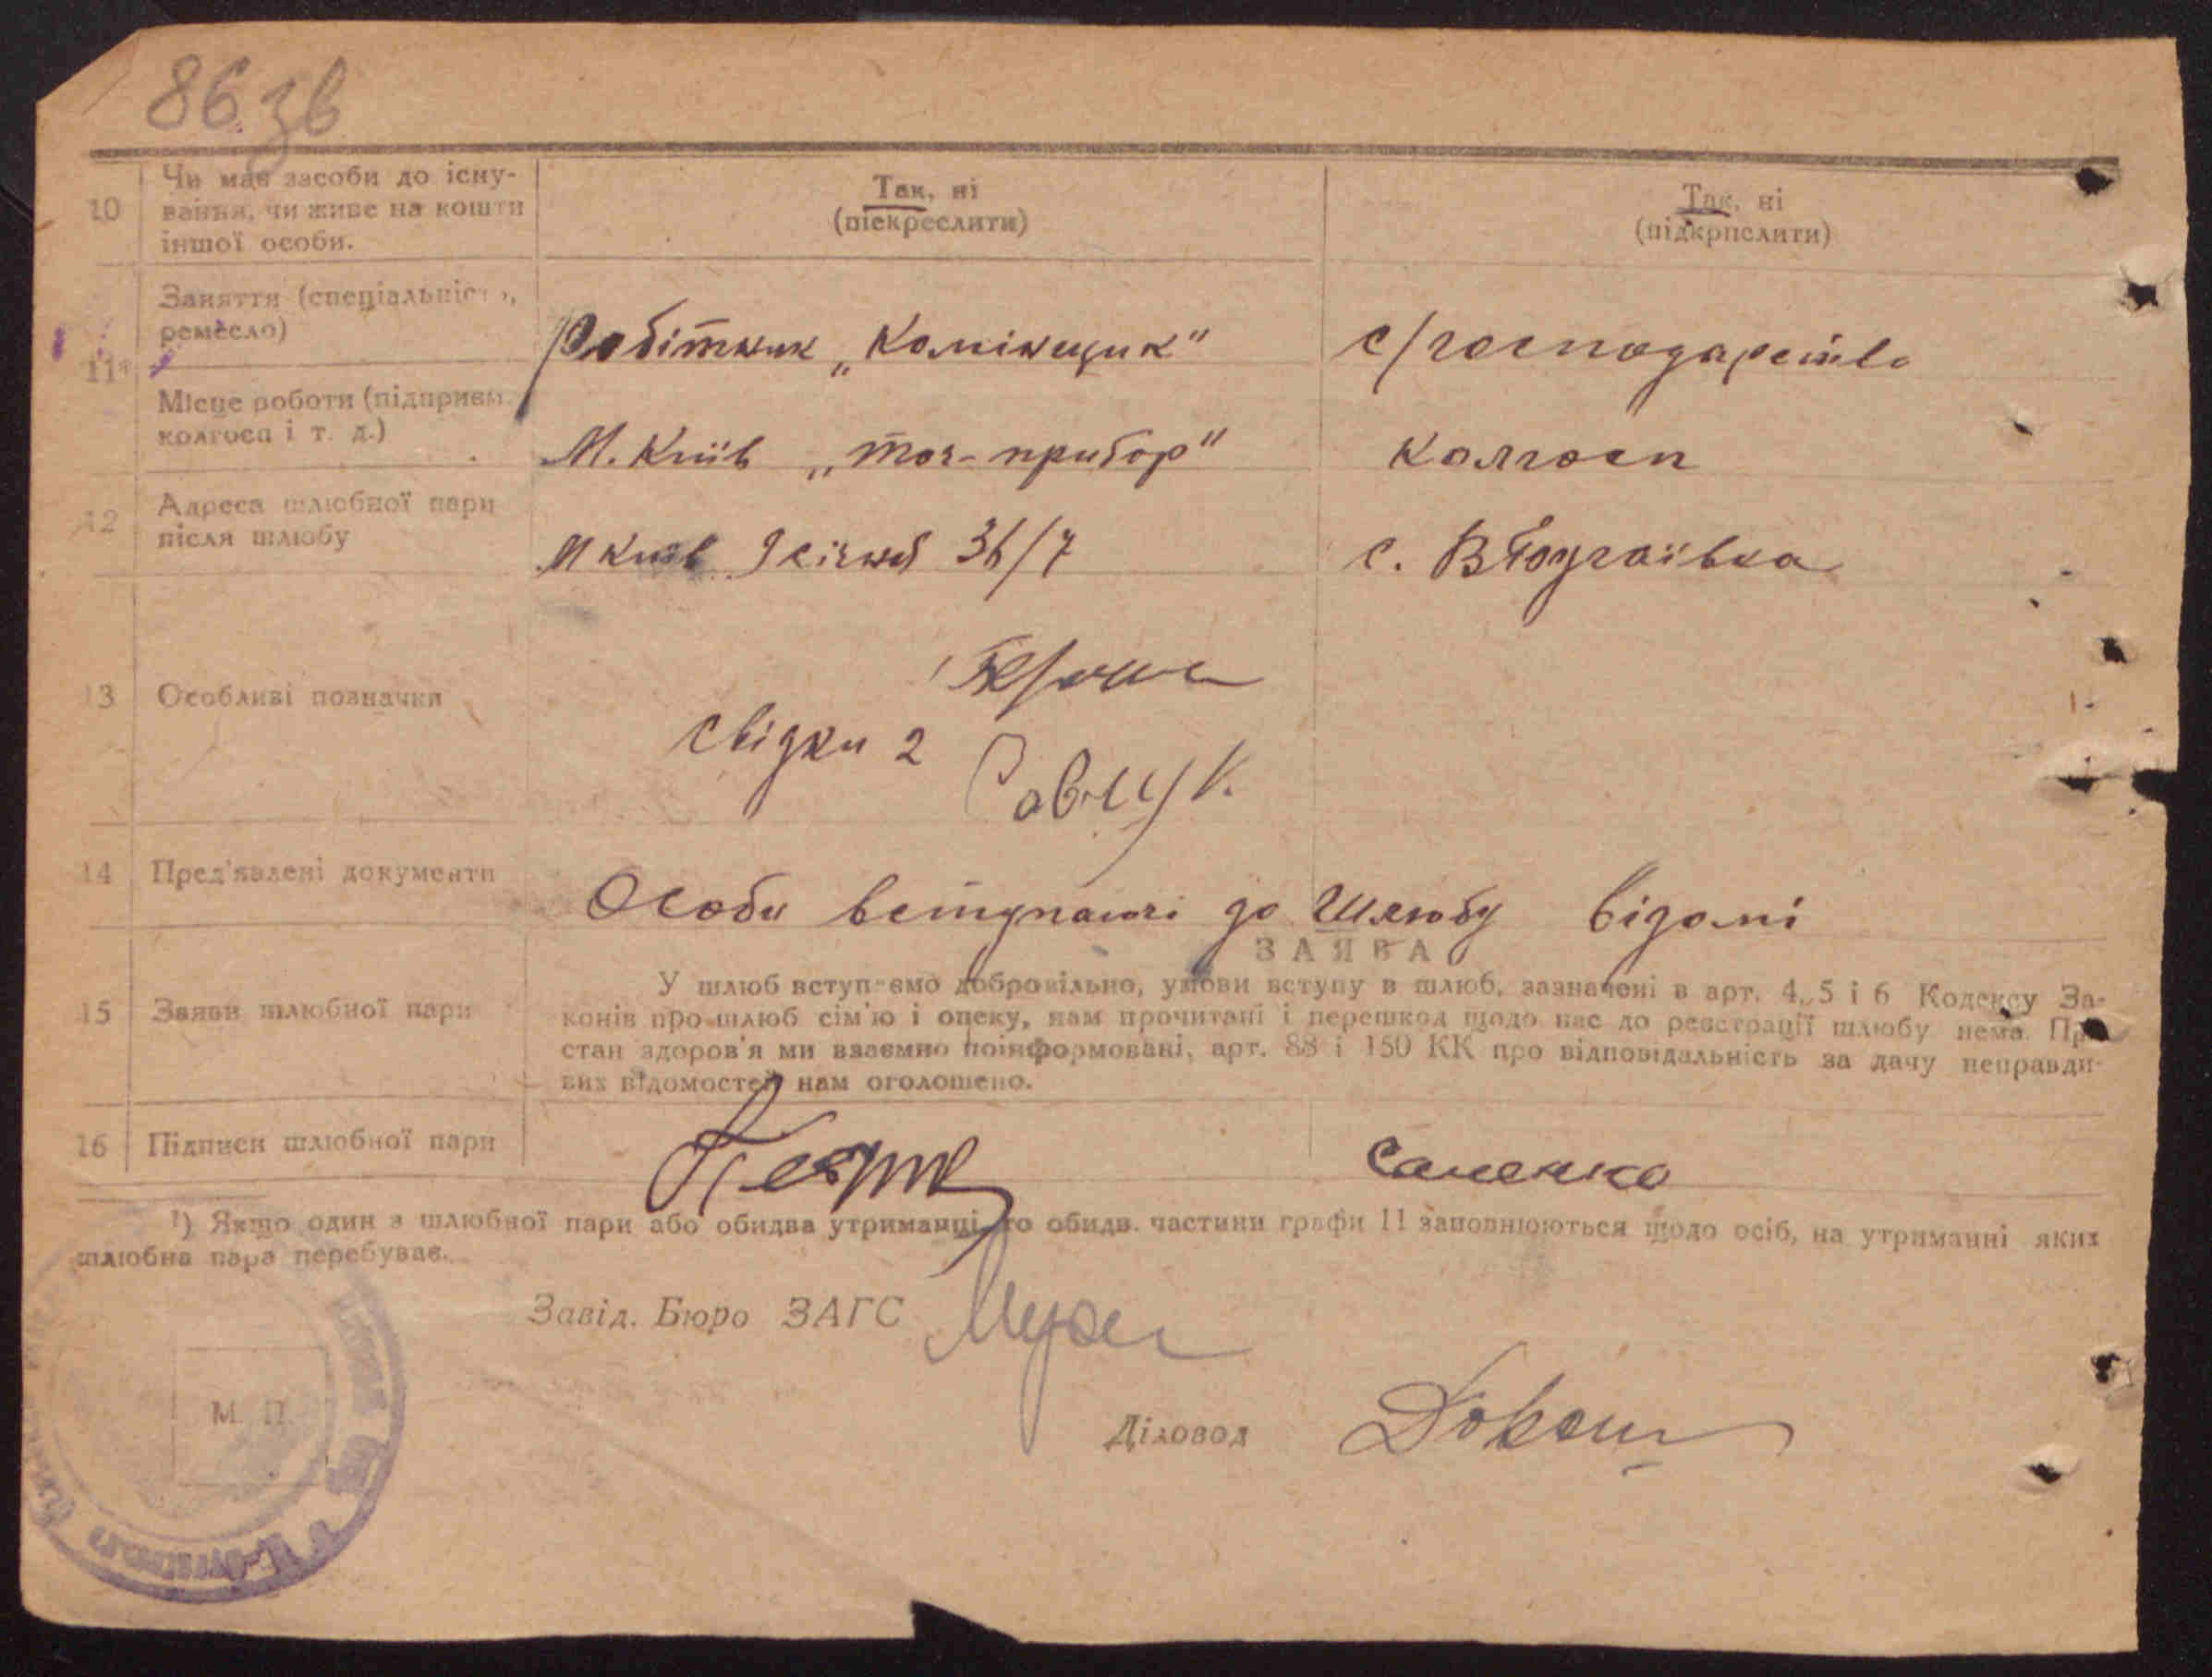 86 зв
10
Чи має засоби до існу-
вання, чи живе на кошти
іншої особи.
Так, ні
(піекреслити)
Так, ні
(підкрпслити)
11
Заняття (спеціальність,
ремесло)
Робітник „Камінщик"
с/господарство
Місце роботи (підприєм.
колгосп і т. д.)
М. Київ „точ-прибор"
Колгосп
12
Адреса шлюбної пари
після шлюбу
М Київ 9 січня 36/7
с. В Бугаївка
13
Особливі позначки
свідки 2
Савчук.
14
Пред'явлені документи
Особи вступаючі до шлюбу відомі
ЗАЯВА
15
Заяви шлюбної пари
У шлюб вступаємо добровільно, умови вступу в шлюб, зазначені в арт. 4, 5 і 6 Кодексу За-
конів про шлюб сім'ю і опеку, нам прочитані і перешкод щодо нас до реєстрації шлюбу нема. Про
стан здоров'я ми взаємно поінформовані, арт. 88 і 150 КК про відповідальність за дачу неправди-
вих відомостей нам оголошено.
16
Підписи шлюбної пари
Саленко
¹) Якщо один з шлюбної пари або обидва утриманці, то обидв. частини графи 11 заповнюються щодо осіб, на утриманні яких
шлюбна пара перебуває.
Завід. Бюро ЗАГС
М. П.
Діловод